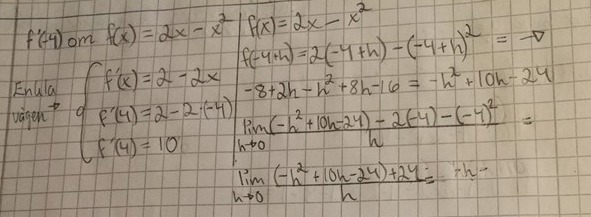 f'(-4) om f(x) = 2x - x²
Enkla vägen →
f'(x) = 2 - 2x
f'(4) = 2 - 2·(-4)
f'(4) = 10
f(x) = 2x - x²
f(-4+h) = 2(-4+h) - (-4+h)² = →
-8+2h-h²+8h-16 = -h²+10h-24
lim h→0 (-h²+10h-24) - 2(-4) - (-4)² / h =
lim h→0 (-h²+10h-24)+24 / h = -h-